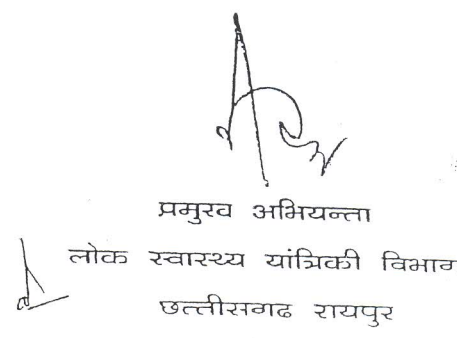 प्रमुख अभियन्ता
लोक स्वास्थ्य यांत्रिकी विभाग
छत्तीसगढ रायपुर